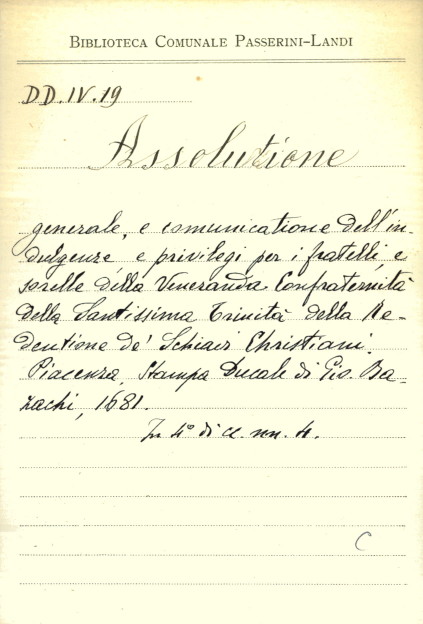 BIBLIOTECA COMUNALE PASSERINI-LANDI
DD.IV.19
Assolutione
generale, e comunicatione dell'in-
dulgenze e privilegi per i fratelli, e
sorelle della Veneranda Confraternità
della Santissima Trinità della Re-
dentione de' Schiavi Christiani.
Piacenza, Stampa Ducale di Gio. Ba-
zachi, 1681.
In 4° di c. nn. 4.
C